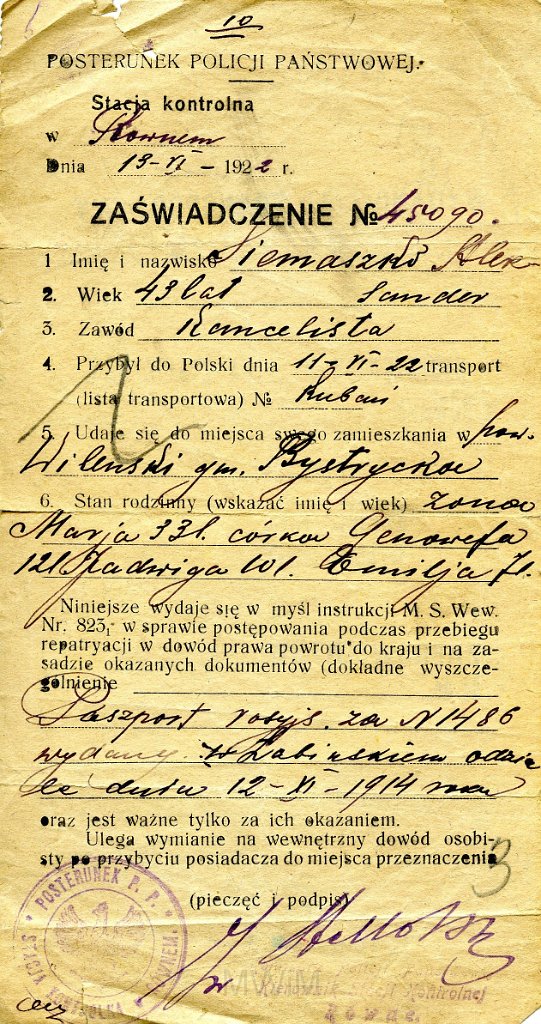 10
POSTERUNEK POLICJI PAŃSTWOWEJ.
Stacja kontrolna
w Równem
Dnia 13-VI-1922 r.
ZAŚWIADCZENIE № 45090.
1 Imię i nazwisko Siemaszko Alek-
2. Wiek 43 lat sander
3. Zawód Kancelista
4. Przybył do Polski dnia 11-VI-22 transport
(lista transportowa) № Kubań
5. Udaje się do miejsca swego zamieszkania w pow.
Wileński gm. Bystrycka
6. Stan rodzinny (wskazać imię i wiek) żona
Marja 33 l. córka Genowefa
12 l. Jadwiga 10 l. Emilja 7 l.
Niniejsze wydaje się w myśl instrukcji M. S. Wew.
Nr. 823, w sprawie postępowania podczas przebiegu
repatryacji w dowód prawa powrotu do kraju i na za-
sadzie okazanych dokumentów (dokładne wyszcze-
gólnienie
Paszport rosyjs. za N 1486
wydany w Łabinskiem
dnia 12-XI-1914 roku
oraz jest ważne tylko za ich okazaniem.
Ulega wymianie na wewnętrzny dowód osobi-
sty po przybyciu posiadacza do miejsca przeznaczenia
3
(pieczęć i podpis)
POSTERUNEK P. P.
STACJA KONTROLNA
MWiM
Kontrolnej
Równe